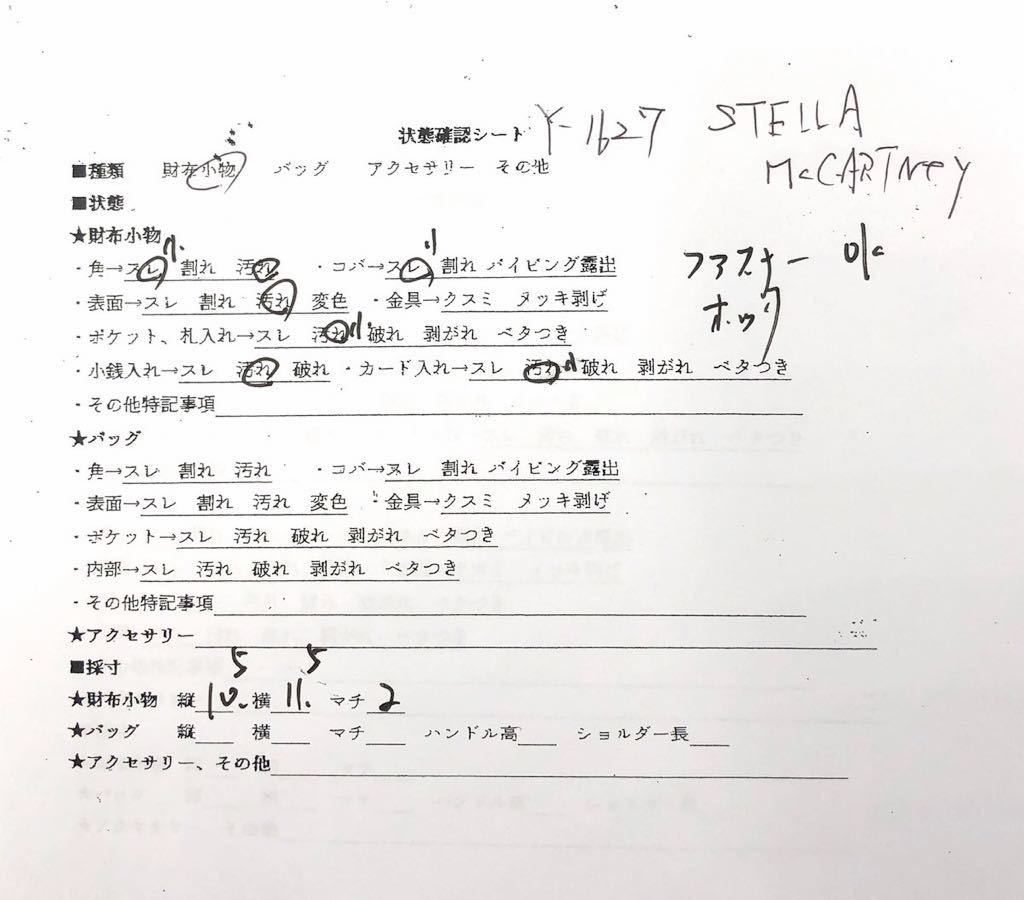 状態確認シート Y-1627 STELLA
McCARTNey
■種類 財布小物 バッグ アクセサリー その他
■状態
★財布小物
・角→スレ 割れ 汚れ ・コバ→スレ 割れ パイピング露出
ファスナー
・表面→スレ 割れ 汚れ 変色 ・金具→クスミ メッキ剥げ
ホック
・ポケット、札入れ→スレ 汚れ 破れ 剥がれ ベタつき
・小銭入れ→スレ 汚れ 破れ ・カード入れ→スレ 汚れ 破れ 剥がれ ベタつき
・その他特記事項
★バッグ
・角→スレ 割れ 汚れ ・コバ→スレ 割れ パイピング露出
・表面→スレ 割れ 汚れ 変色 ・金具→クスミ メッキ剥げ
・ポケット→スレ 汚れ 破れ 剥がれ ベタつき
・内部→スレ 汚れ 破れ 剥がれ ベタつき
・その他特記事項
★アクセサリー
■採寸
★財布小物 縦10.5 横11.5 マチ2
★バッグ 縦 横 マチ ハンドル高 ショルダー長
★アクセサリー、その他